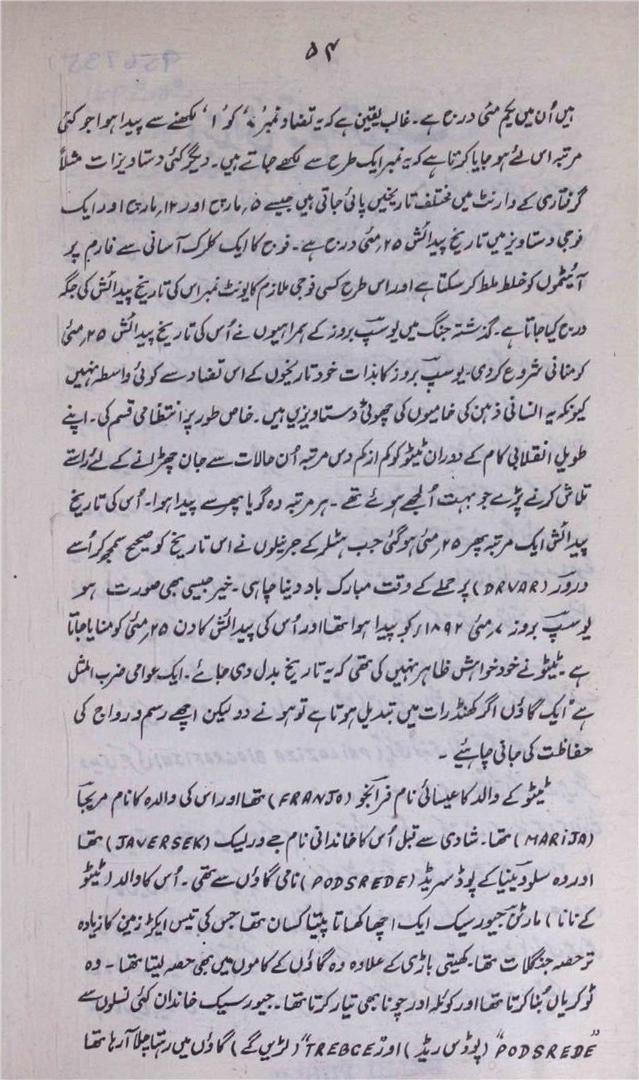 ۵۴
ہیں اُن میں یکم مئی درج ہے۔ غالب یقین ہے کہ یہ تضاد نمبر '۷' کو '۱' لکھنے سے پیدا ہوا جو کئی
مرتبہ اس لئے ہو جایا کرتا ہے کہ یہ نمبر ایک طرح سے لکھے جاتے ہیں۔ دیگر کئی دستاویزات مثلاً
گرفتاری کے وارنٹ میں مختلف تاریخیں پائی جاتی ہیں جیسے ۵؍مارچ اور ۱۲؍مارچ اور ایک
فوجی دستاویز میں تاریخ پیدائش ۲۵؍مئی درج ہے۔ فوج کا ایک کلرک آسانی سے فارم پر
آئیٹموں کو خلط ملط کر سکتا ہے اور اس طرح کسی فوجی ملازم کا یونٹ نمبر اس کی تاریخ پیدائش کی جگہ
درج کیا جاتا ہے۔ گذشتہ جنگ میں یوسپ بروز کے ہمراہیوں نے اُس کی تاریخ پیدائش ۲۵؍مئی
کو منانی شروع کر دی۔ یوسپ بروز کا بذات خود تاریخوں کے اس تضاد سے کوئی واسطہ نہیں
کیونکہ یہ انسانی ذہن کی خامیوں کی چھوٹی دستاویزیں ہیں۔ خاص طور پر انتظامی قسم کی۔ اپنے
طویل انقلابی کام کے دوران ٹیٹو کو کم از کم دس مرتبہ اُن حالات سے جان چھڑانے کے لئے راستے
تلاش کرنے پڑے جو بہت اُلجھے ہوئے تھے۔ ہر مرتبہ وہ گویا پھر سے پیدا ہوا۔ اُس کی تاریخ
پیدائش ایک مرتبہ پھر ۲۵؍مئی ہو گئی جب ہٹلر کے جرنیلوں نے اس تاریخ کو صحیح سمجھ کر اُسے
درور (DRVAR) پر حملے کے وقت مبارک باد دینا چاہی۔ خیر جیسی بھی صورت ہو
یوسپ بروز ۷؍مئی ۱۸۹۲؍ کو پیدا ہوا تھا اور اُس کی پیدائش کا دن ۲۵؍مئی کو منایا جاتا
ہے۔ ٹیٹو نے خود خواہش ظاہر نہیں کی تھی کہ یہ تاریخ بدل دی جائے۔ ایک عوامی ضرب المثل
ہے "ایک گاؤں اگر کھنڈرات میں تبدیل ہوتا ہے تو ہونے دو لیکن اچھے رسم و رواج کی
حفاظت کی جانی چاہئیے۔
ٹیٹو کے والد کا عیسائی نام فرانجو (FRANJO) تھا اور اس کی والدہ کا نام مریجا
(MARIJA) تھا۔ شادی سے قبل اُس کا خاندانی نام جے ورلیک (JAVERSEK) تھا
اور وہ سلووینیا کے پوڈ سہریڈ (PODSREDE) نامی گاؤں سے تھی۔ اُس کا والد (ٹیٹو
کے نانا) مارٹن جیورسیک ایک اچھا کھاتا پیتا کسان تھا جس کی تیس ایکڑ زمین کا زیادہ
تر حصہ جنگلات تھا۔ کھیتی باڑی کے علاوہ وہ گاؤں کے کاموں میں بھی حصہ لیتا تھا۔ وہ
ٹوکریاں بُنا کرتا تھا اور کوئلہ اور چونا بھی تیار کرتا تھا۔ جیورسیک خاندان کئی نسلوں سے
"PODSREDE" (پوڈس ریڈ) اور "TREBCE" (ٹریں گے) گاؤں میں رہتا چلا آ رہا تھا